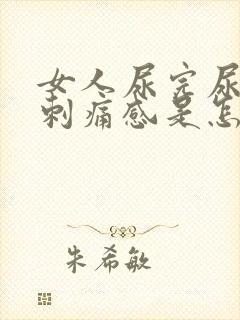 女人尿完尿
刺痛感是怎
朱希敏